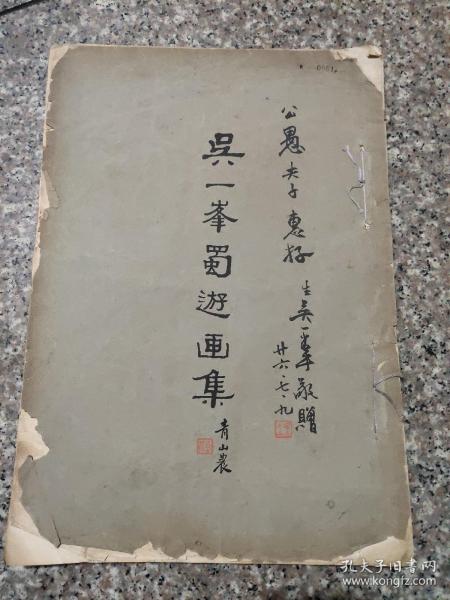 公愚夫子惠存
生吴一峯敬贈
廿六·七·九
吳一峯蜀遊画集
青山農
孔夫子旧书网
www.kongfz.com